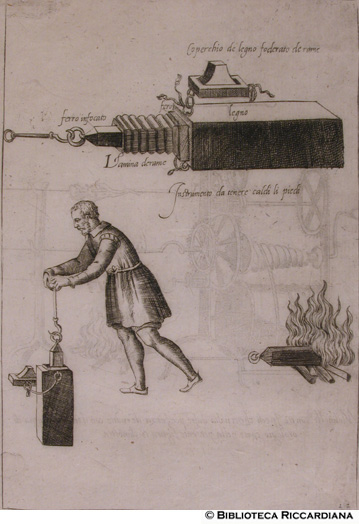 Coperchio de legno foderato de rame
ferro infocato
fero
legno
Lamina de rame
Instrumento da tenere caldi li piedi
© BIBLIOTECA RICCARDIANA